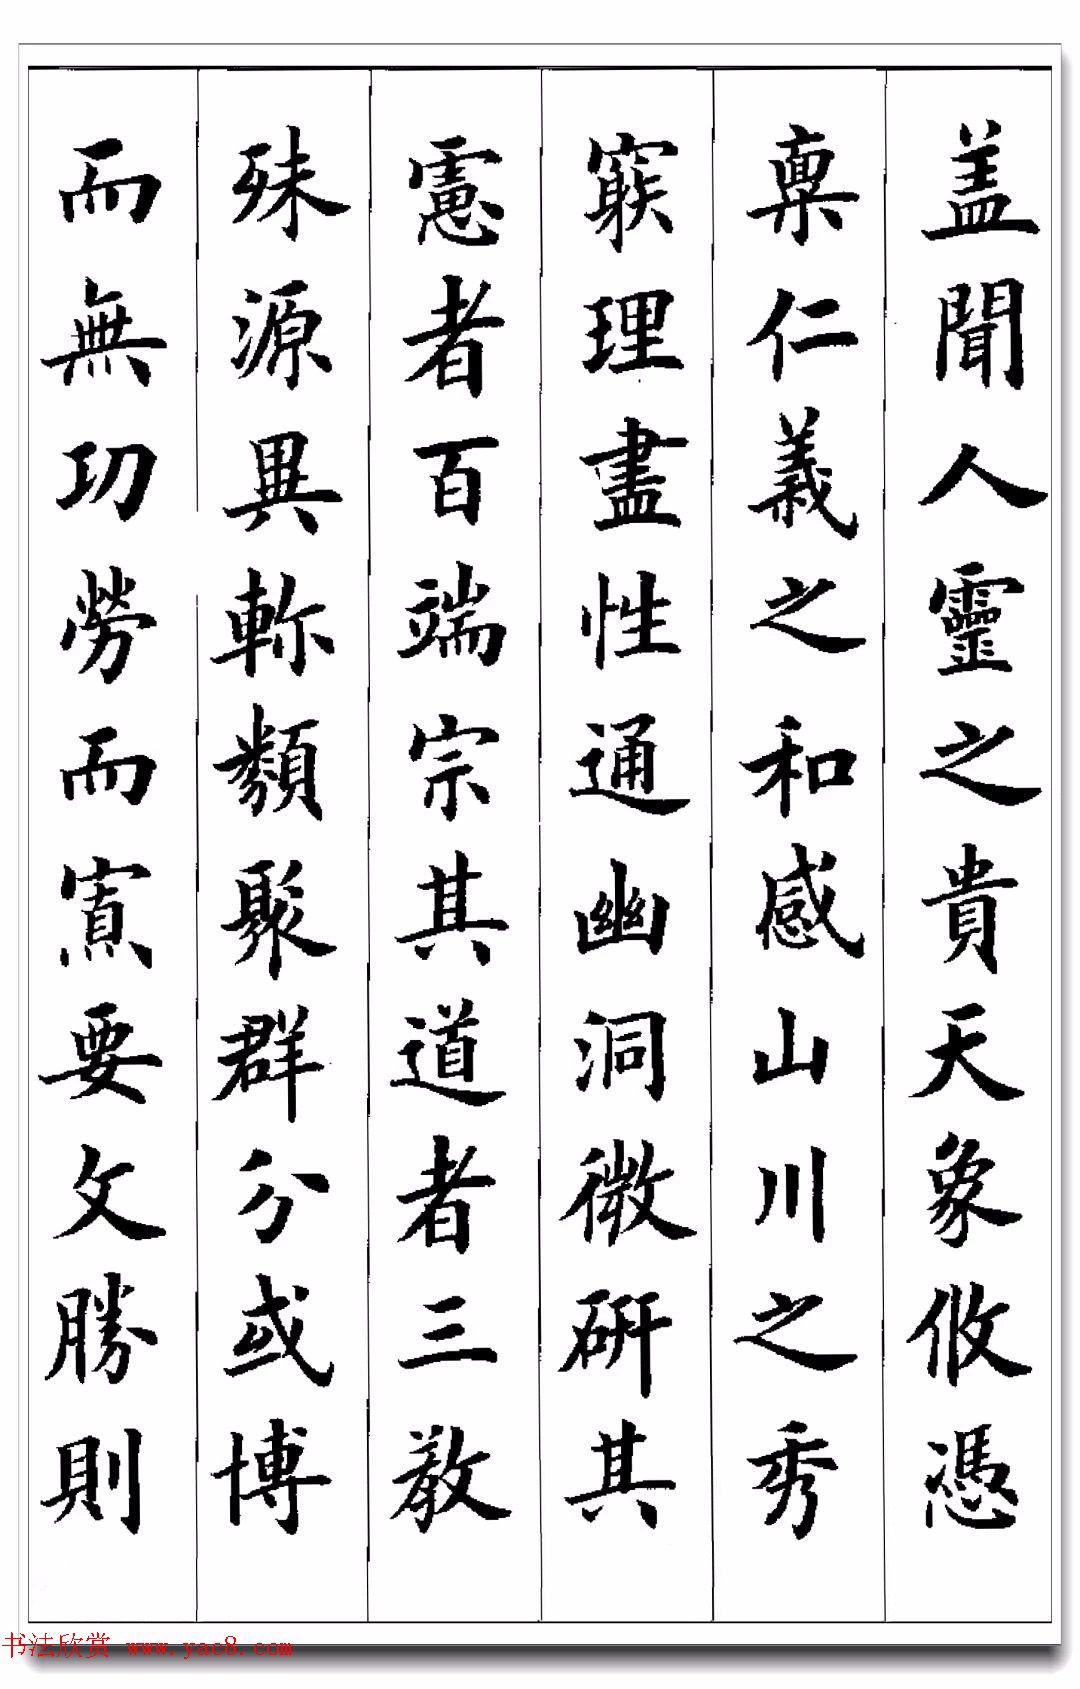 盖聞人靈之貴天象攸憑
稟仁義之和感山川之秀
窮理盡性通幽洞微研其
慮者百端宗其道者三教
殊源異軫類聚群分或博
而無功勞而寡要文勝則
书法欣赏 www.yac8.com